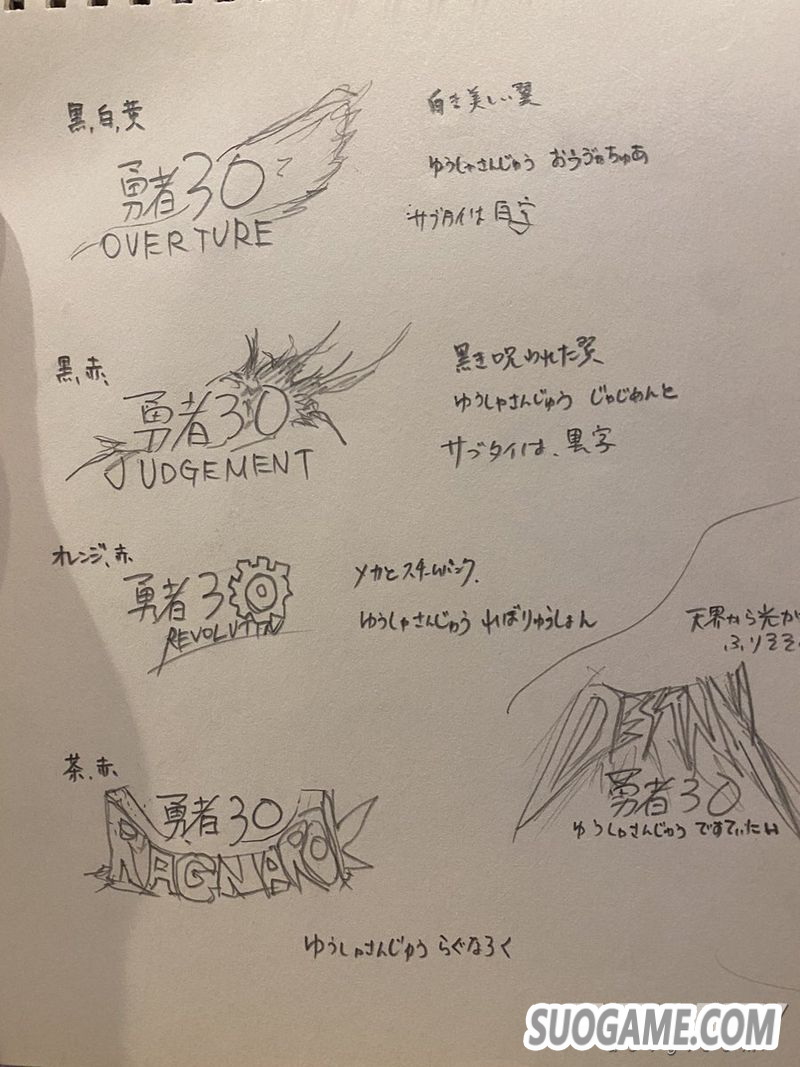 黒,白,黄
白き美しい翼
勇者30
OVERTURE
ゆうしゃさんじゅう おうゔぁちゅあ
サブタイは白字
黒,赤,
黒き呪われた翼
勇者30
JUDGEMENT
ゆうしゃさんじゅう じゃじめんと
サブタイは、黒字
オレンジ、赤
メカとスチームパンク.
勇者30
REVOLUTION
ゆうしゃさんじゅう れぼりゅうしょん
天界から光が
ふりそそ
DESTINY
勇者30
ゆうしゃさんじゅう ですてぃにぃ
茶、赤
勇者30
RAGNAROK
ゆうしゃさんじゅう らぐなろく
SUOGAME.COM